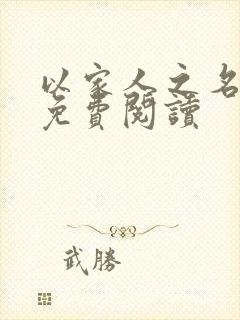 以家人之名
免費閱讀
武勝